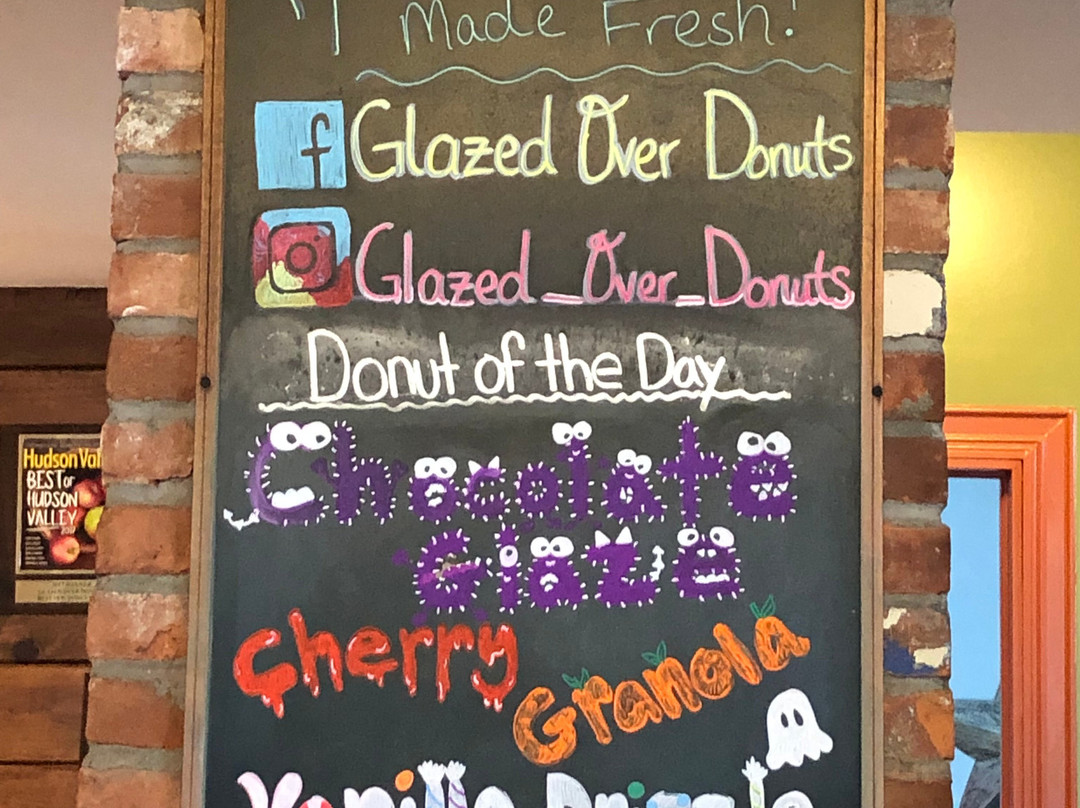 Made Fresh!
f Glazed Over Donuts
Glazed_Over_Donuts
Donut of the Day
Chocolate
Glaze
Cherry
Granola
Vanilla Drizzle
Hudson Val
BEST of
HUDSON
VALLEY